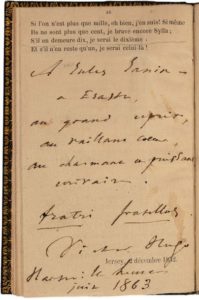 Si l'on n'est plus que mille, eh bien, j'en suis! Si même
Ils ne sont plus que cent, je brave encore Sylla;
S'il en demeure dix, je serai le dixième;
Et s'il n'en reste qu'un, je serai celui-là!
A Jules Janin
au grand esprit,
au vaillant cœur,
au charmant et puissant
écrivain.
fratri
Victor Hugo
Jersey, décembre 1852.
Hauteville house
juin 1863